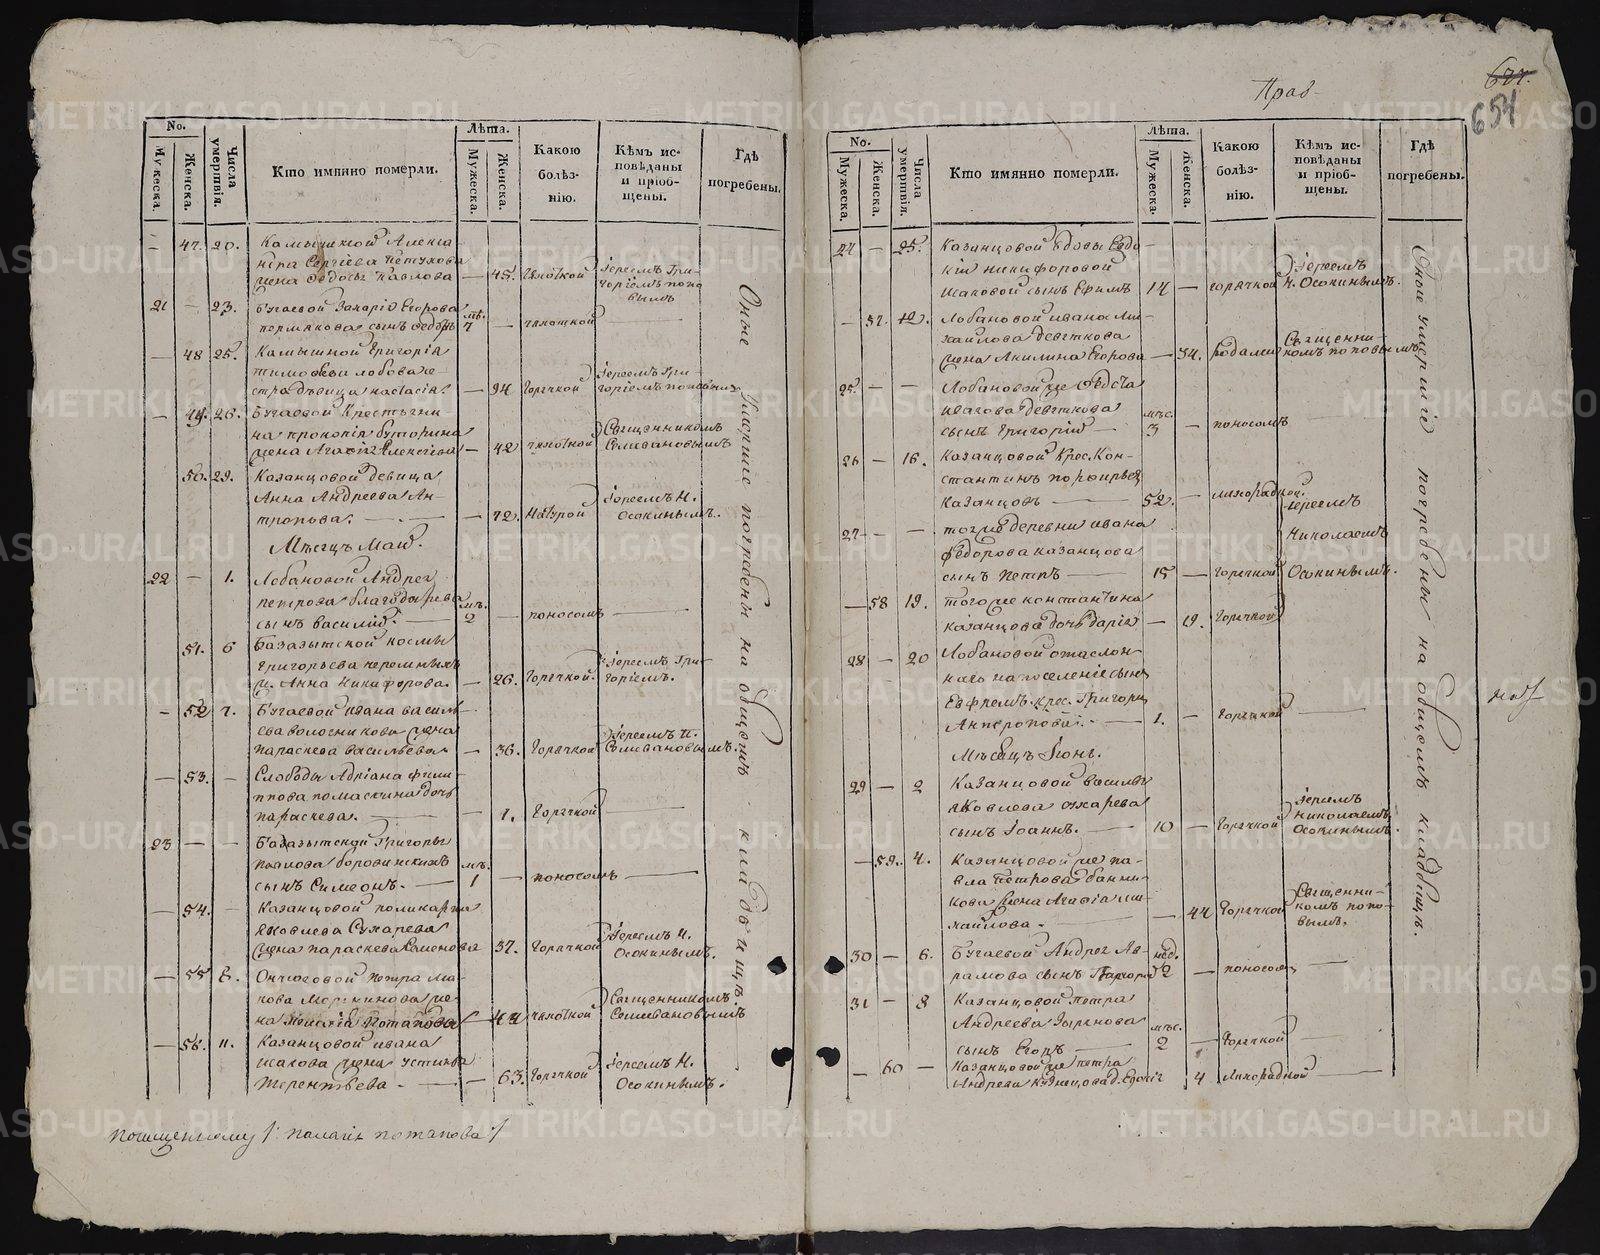 Прав-
677.
654
No.
Мужеска.
Женска.
Числа умертвія.
Кто имянно померли.
Лѣта.
Мужеска.
Женска.
Какою болѣз-
нію.
Кѣмъ ис-
повѣданы
и пріоб-
щены.
Гдѣ
погребены.
— 47. 20. Камышной Алексан-
дра Сергіева Петухова
жена Ѳедосья Павлова — 45. чахоткой Іереемъ Гри-
горіемъ попо
вымъ
21 — 23. Бугаевой Захаріи Егорова
пермякова сынъ Ѳедоръ 7 — чахоткой —
— 48 25. Камышной Григорія
тимофеева лобова се-
стра дѣвица настасія. — 94 горячкой Іереемъ Гри-
горіемъ поповымъ
— 49. 26. Бугаевой Крестьяни-
на прокопія буторина
жена Агафія Алексіева — 42 чахоткой Священникомъ
Селивановымъ
50. 29. Казанцовой девица
Анна Андреева Ан-
тропова. — 72. Натурой Іереемъ Н.
Осокинымъ.
Мѣсяцъ Маій.
22 — 1. Лобановой Андрея
петрова благодарева мѣ.
сынъ василій. — 2 — поносомъ —
51. 6 Базазытской космы
Григорьева черемныхъ
ж. Анна Никифорова. — 26. Горячкой. Іереемъ Гри-
горіемъ.
— 52 7. Бугаевой ивана василь-
ева волосникова жена
параскева васильева — 36. Горячкой Іереемъ И.
Селивановымъ
— 53. — Слободы Адріана фили-
ппова помаскина дочь
параскева. — — 1. Горячкой —
23 — — Базазытской Григорья
павлова боровинскихъ мѣ.
сынъ Симеонъ. — 1 — поносомъ —
— 54. — Казанцовой поликарпа
Яковлева Сухарева
жена параскева Семенова 37. Горячкой Іереемъ Н.
Осокинымъ.
— 55 6. Ончюговой петра ма-
кова же-
на Потапова — 44 чахоткой Священникомъ
Селивановымъ
— 56. 11. Казанцовой ивана
исакова жена устинья
Терентьева — — 63. Горячкой Іереемъ Н.
Осокинымъ.
Оные умершіе погребены на общемъ кладбищѣ
потапова
No.
Мужеска.
Женска.
Числа умертвія.
Кто имянно померли.
Лѣта.
Мужеска.
Женска.
Какою
болѣз-
нію.
Кѣмъ ис-
повѣданы
и пріоб-
щены.
Гдѣ
погребены.
24 — 25. Казанцовой вдовы Евдо-
кіи никифоровой
исаковой сынъ Ефимъ 14 — горячкой Іереемъ
Н. Осокинымъ.
— 57. 12. Лобановой ивана ми-
хаилова девяткова
жена Акилина Егорова — 34. родами Священни-
комъ поповымъ
25. — — Лобановой же
исакова девяткова мѣс.
сынъ Григорій — 3 — поносомъ
26 — 16. Казанцовой Крес. Кон-
стантинъ порфирьев
Казанцовъ — 52. — лихорадкой. Іереемъ
27 — — тоже деревни ивана
Николаемъ
федорова казанцова
сынъ петръ — 15 — Горячкой Осокинымъ.
— 58 19. того же константина
казанцова дочь дарія — 19. Горячкой
28 — 20 Лобановой отаслан-
наго на поселеніе сынъ
Евфремъ крес. Григорія
— 1. — Горячкой —
Мѣсяцъ Іюнь.
29 — 2 Казанцовой василья
Яковлева
сынъ Іоаннъ. — 10 — Горячкой Іереемъ
Николаемъ
Осокинымъ.
— 59. 4. Казанцовой же па-
вла Петрова банни-
кова жена Агафія ми-
хаилова. — — 44 Горячкой Священни-
комъ попо-
вымъ.
30 — 6. Бугаевой Андрея Ав- нед.
рамова сынъ 2 — поносомъ —
31 — 8 Казанцовой петра
Андреева Зырянова мѣс.
сынъ Егоръ — 2 — Горячкой —
— 60 — Казанцовой же петра
Андреева кузнецова д. 4 Лихорадкой —
Оные умершіе погребены на общемъ кладбищѣ.
METRIKI.GASO-URAL.RU